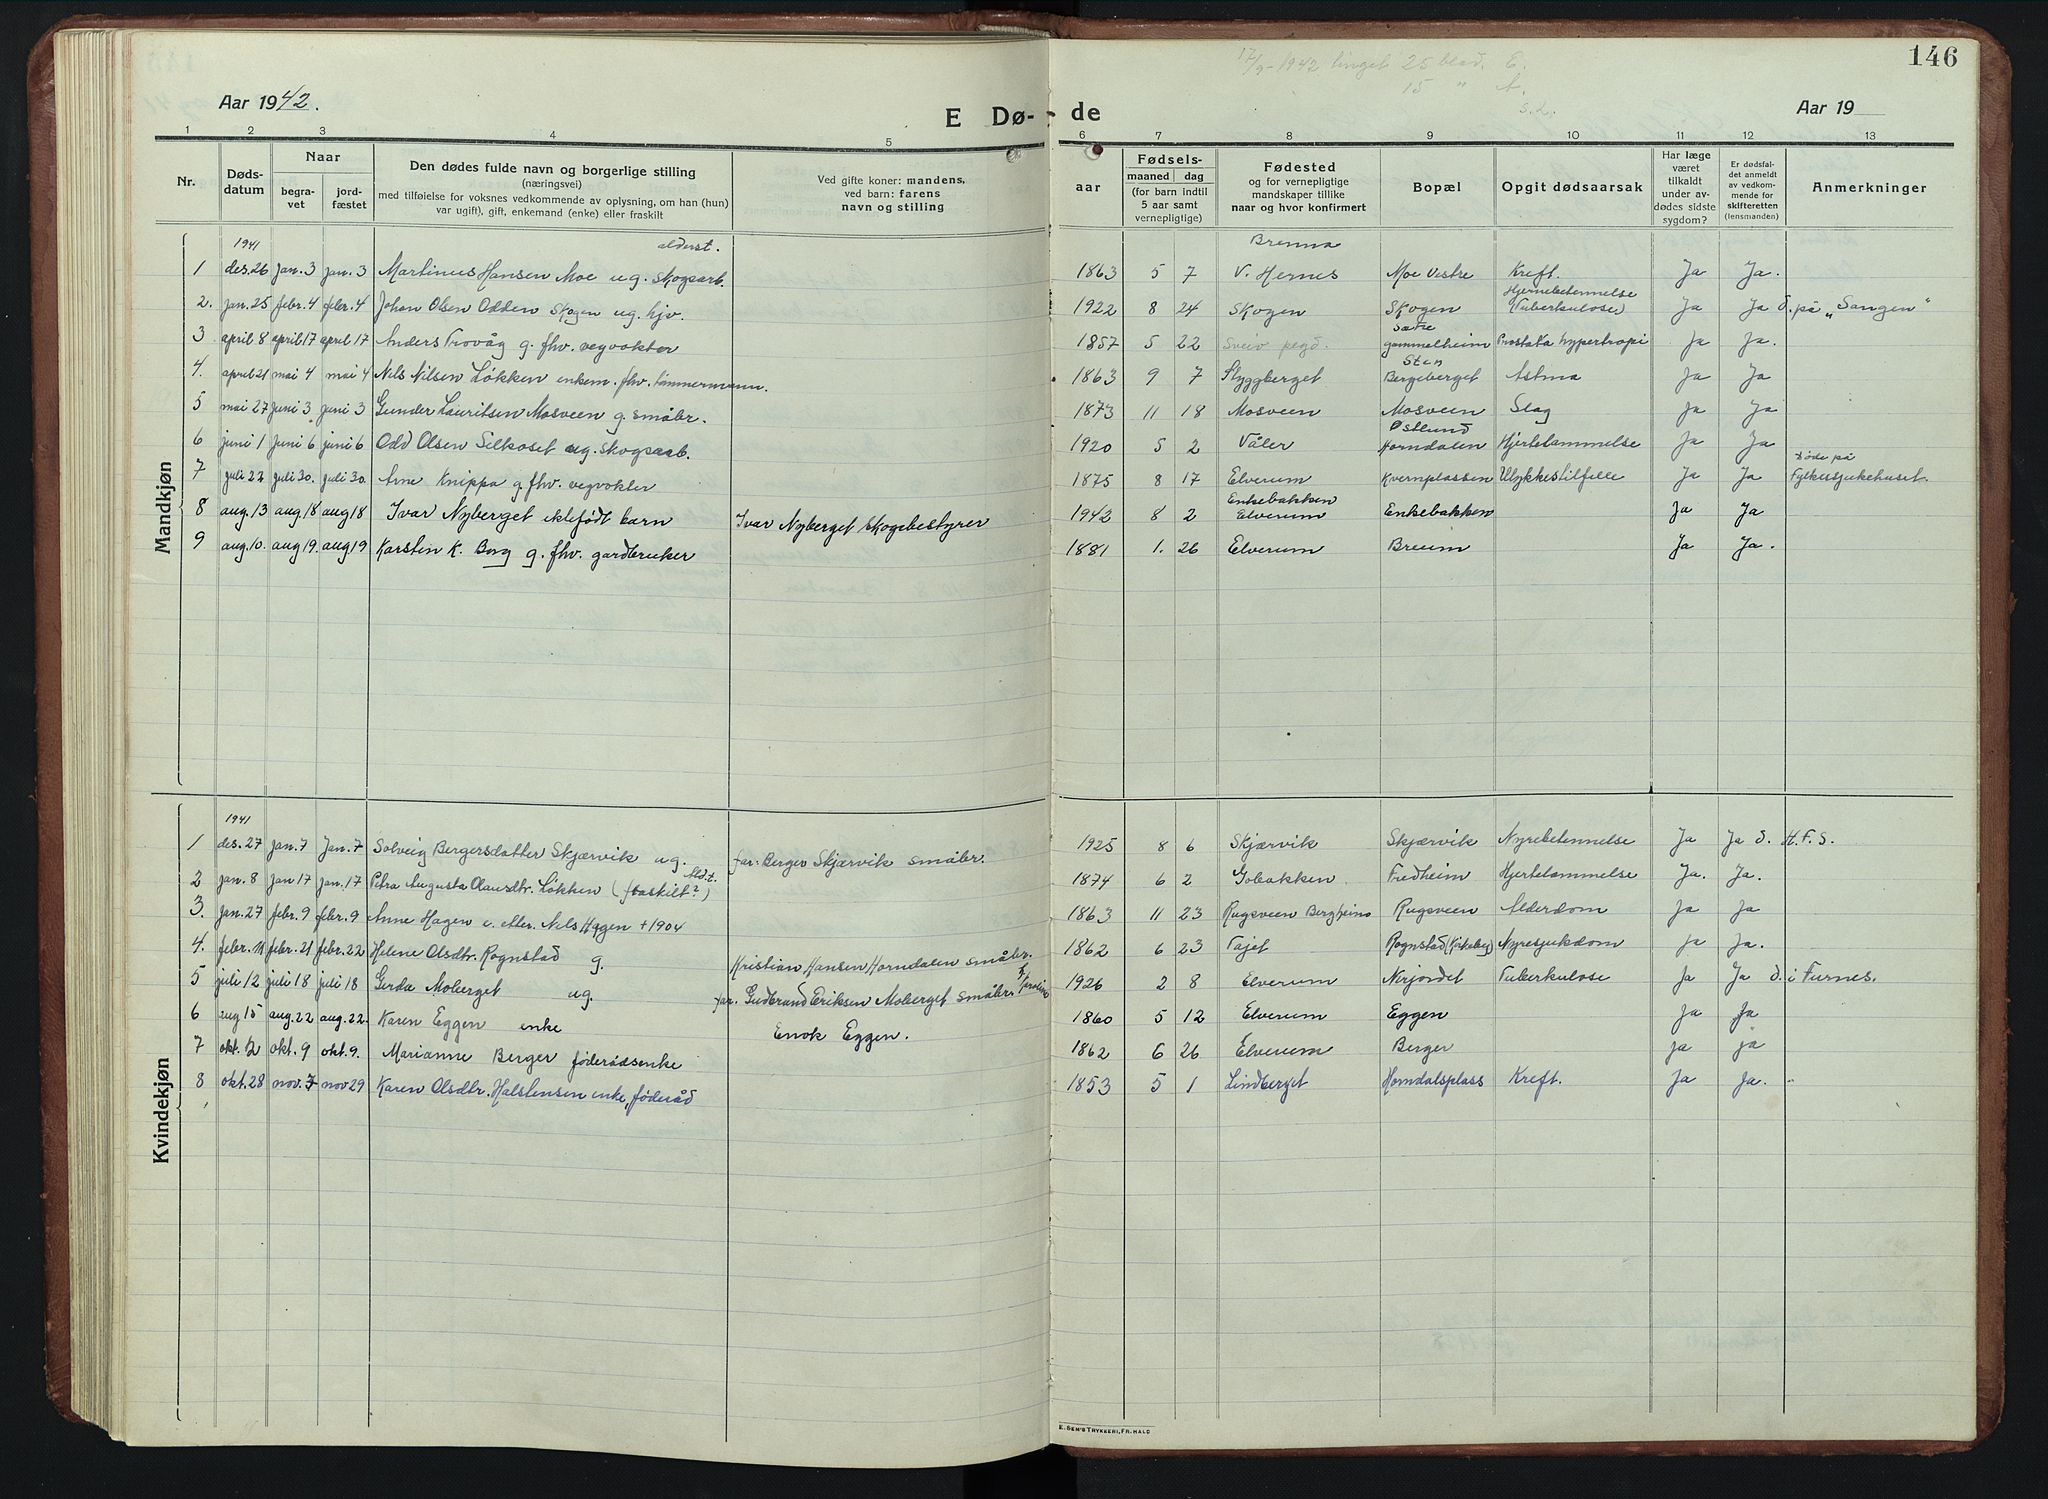 17/9-1942 25 blad. E.
15 "
146
Aar 1942.
E Dø-
de
Aar 19
1 2 3 4 5 6 7 8 9 10 11 12 13
Nr. Døds-datum Naar begra-vet jord-fæstet
Den dødes fulde navn og borgerlige stilling
(næringsvei)
med tilføielse for voksnes vedkommende av oplysning, om han (hun)
var ugift), gift, enkemand (enke) eller fraskilt
Ved gifte koner: mandens,
ved barn: farens
navn og stilling
aar
Fødsels-
maaned dag
(for barn indtil
5 aar samt
vernepligtige)
Fødested
og for vernepligtige
mandskaper tillike
naar og hvor konfirmert
Bopæl
Opgit dødsaarsak
Har læge
været
tilkaldt
under av-
dødes sidste
sygdom?
Er dødsfal-
det anmeldt
av vedkom-
mende for
skifteretten
(lensmanden)
Anmerkninger
Mandkjøn
1941 alderst. Brenna
1 des.26 jan.3 jan.3 Martinus Hansen Moe ug. skogsarb. 1863 5 7 V. Hernes Moe Vestre Kreft. Ja Ja.
Hjernebetennelse
2. jan.25 febr.4 febr.4 Johan Olsen Odden Skogen ug. hjv. 1922 8 24 Skogen Skogen (Tuberkulose) Ja Ja d. på "Sangen"
Sætre
3 april 8 april 17 april 17 Anders Trovåg g. fhv. vegvokter 1857 5 22 Sveio pegd. gammelheim Prostata hypertropi Ja Ja.
Sten
4. april 21 mai 4 mai 4 Nils Nilsen Løkken enkem. fhv. tømmermann. 1863 9 7 Styggberget Bergeberget Astma Ja Ja
5 mai 27 juni 3 juni 3 Gunder Lauritsen Mosveen g. småbr. 1873 11 18 Mosveen Mosveen Slag Ja Ja
Østlund
6 juni 1 juni 6 juni 6 Odd Olsen Silkoset ug. skogsarb. 1920 5 2 Våler Horndalen Hjertelammelse Ja Ja
Døde på
7 juli 22 juli 30. juli 30. Arne Knippa g. fhv. vegvokter 1875 8 17 Elverum Kvernplassen Ulykkestilfelle Ja Ja Fylkessjukehuset.
Enkebakken
8 aug.13 aug 18 aug 18 Ivar Nyberget iktefødt barn Ivar Nyberget skogbestyrer 1942 8 2 Elverum Enkebakken Ja Ja
9 aug.10. aug 19. aug 19 Karsten K. Borg g. fhv. gardbruker 1881 1. 26 Elverum Breum Ja Ja.
Kvindekjøn
1941
1 des.27 jan.7 Jan.7 Solveig Bergersdatter Skjærvik ug. far: Berger Skjærvik småbr. 1925 8 6 Skjærvik Skjærvik Nyrebetennelse Ja Ja d. H.F.S.
2 jan.8 jan 17 jan.17 Petra Augusta Olausdtr. Løkken (fraskilt?) 1874 6 2 Gobakken Fredheim Hjertelammelse Ja. Ja.
3. jan.27 febr.9 febr.9 Anne Hagen e. etter. Nils Hagen +1904 1863 11 23 Rugsveen Bergheim Rugsveen Alderdom Ja Ja
4. febr.11 febr.21 febr.22 Helene Olsdtr. Rognstad g. Kristian Hansen Horndalen småbr. 1862 6 23 Tajet Rognstad (Kirkeby) Nyresjukdom Ja Ja.
5 juli 12 juli 18 juli 18 Gerda Moberget ug. far. Gudbrand Eriksen Moberget småbr. 1926 2 8 Elverum Nirjordet Tuberkulose Ja Ja d. i Furnes.
6 aug 15 aug.22 aug.22. Karen Eggen enke Enok Eggen. 1860 5 12 Elverum Eggen Ja Ja
7 okt. 2 okt. 9 okt. 9. Marianne Berger føderådsenke 1862 6 26 Elverum Berger Ja ja
8 okt.28 nov.7 nov 29 Karen Olsdtr. Halstensen enke, føderåd 1853 5 1 Lindberget Horndalsplass Kreft. Ja Ja.
E. SEM'S TRYKKERI, FR.HALD